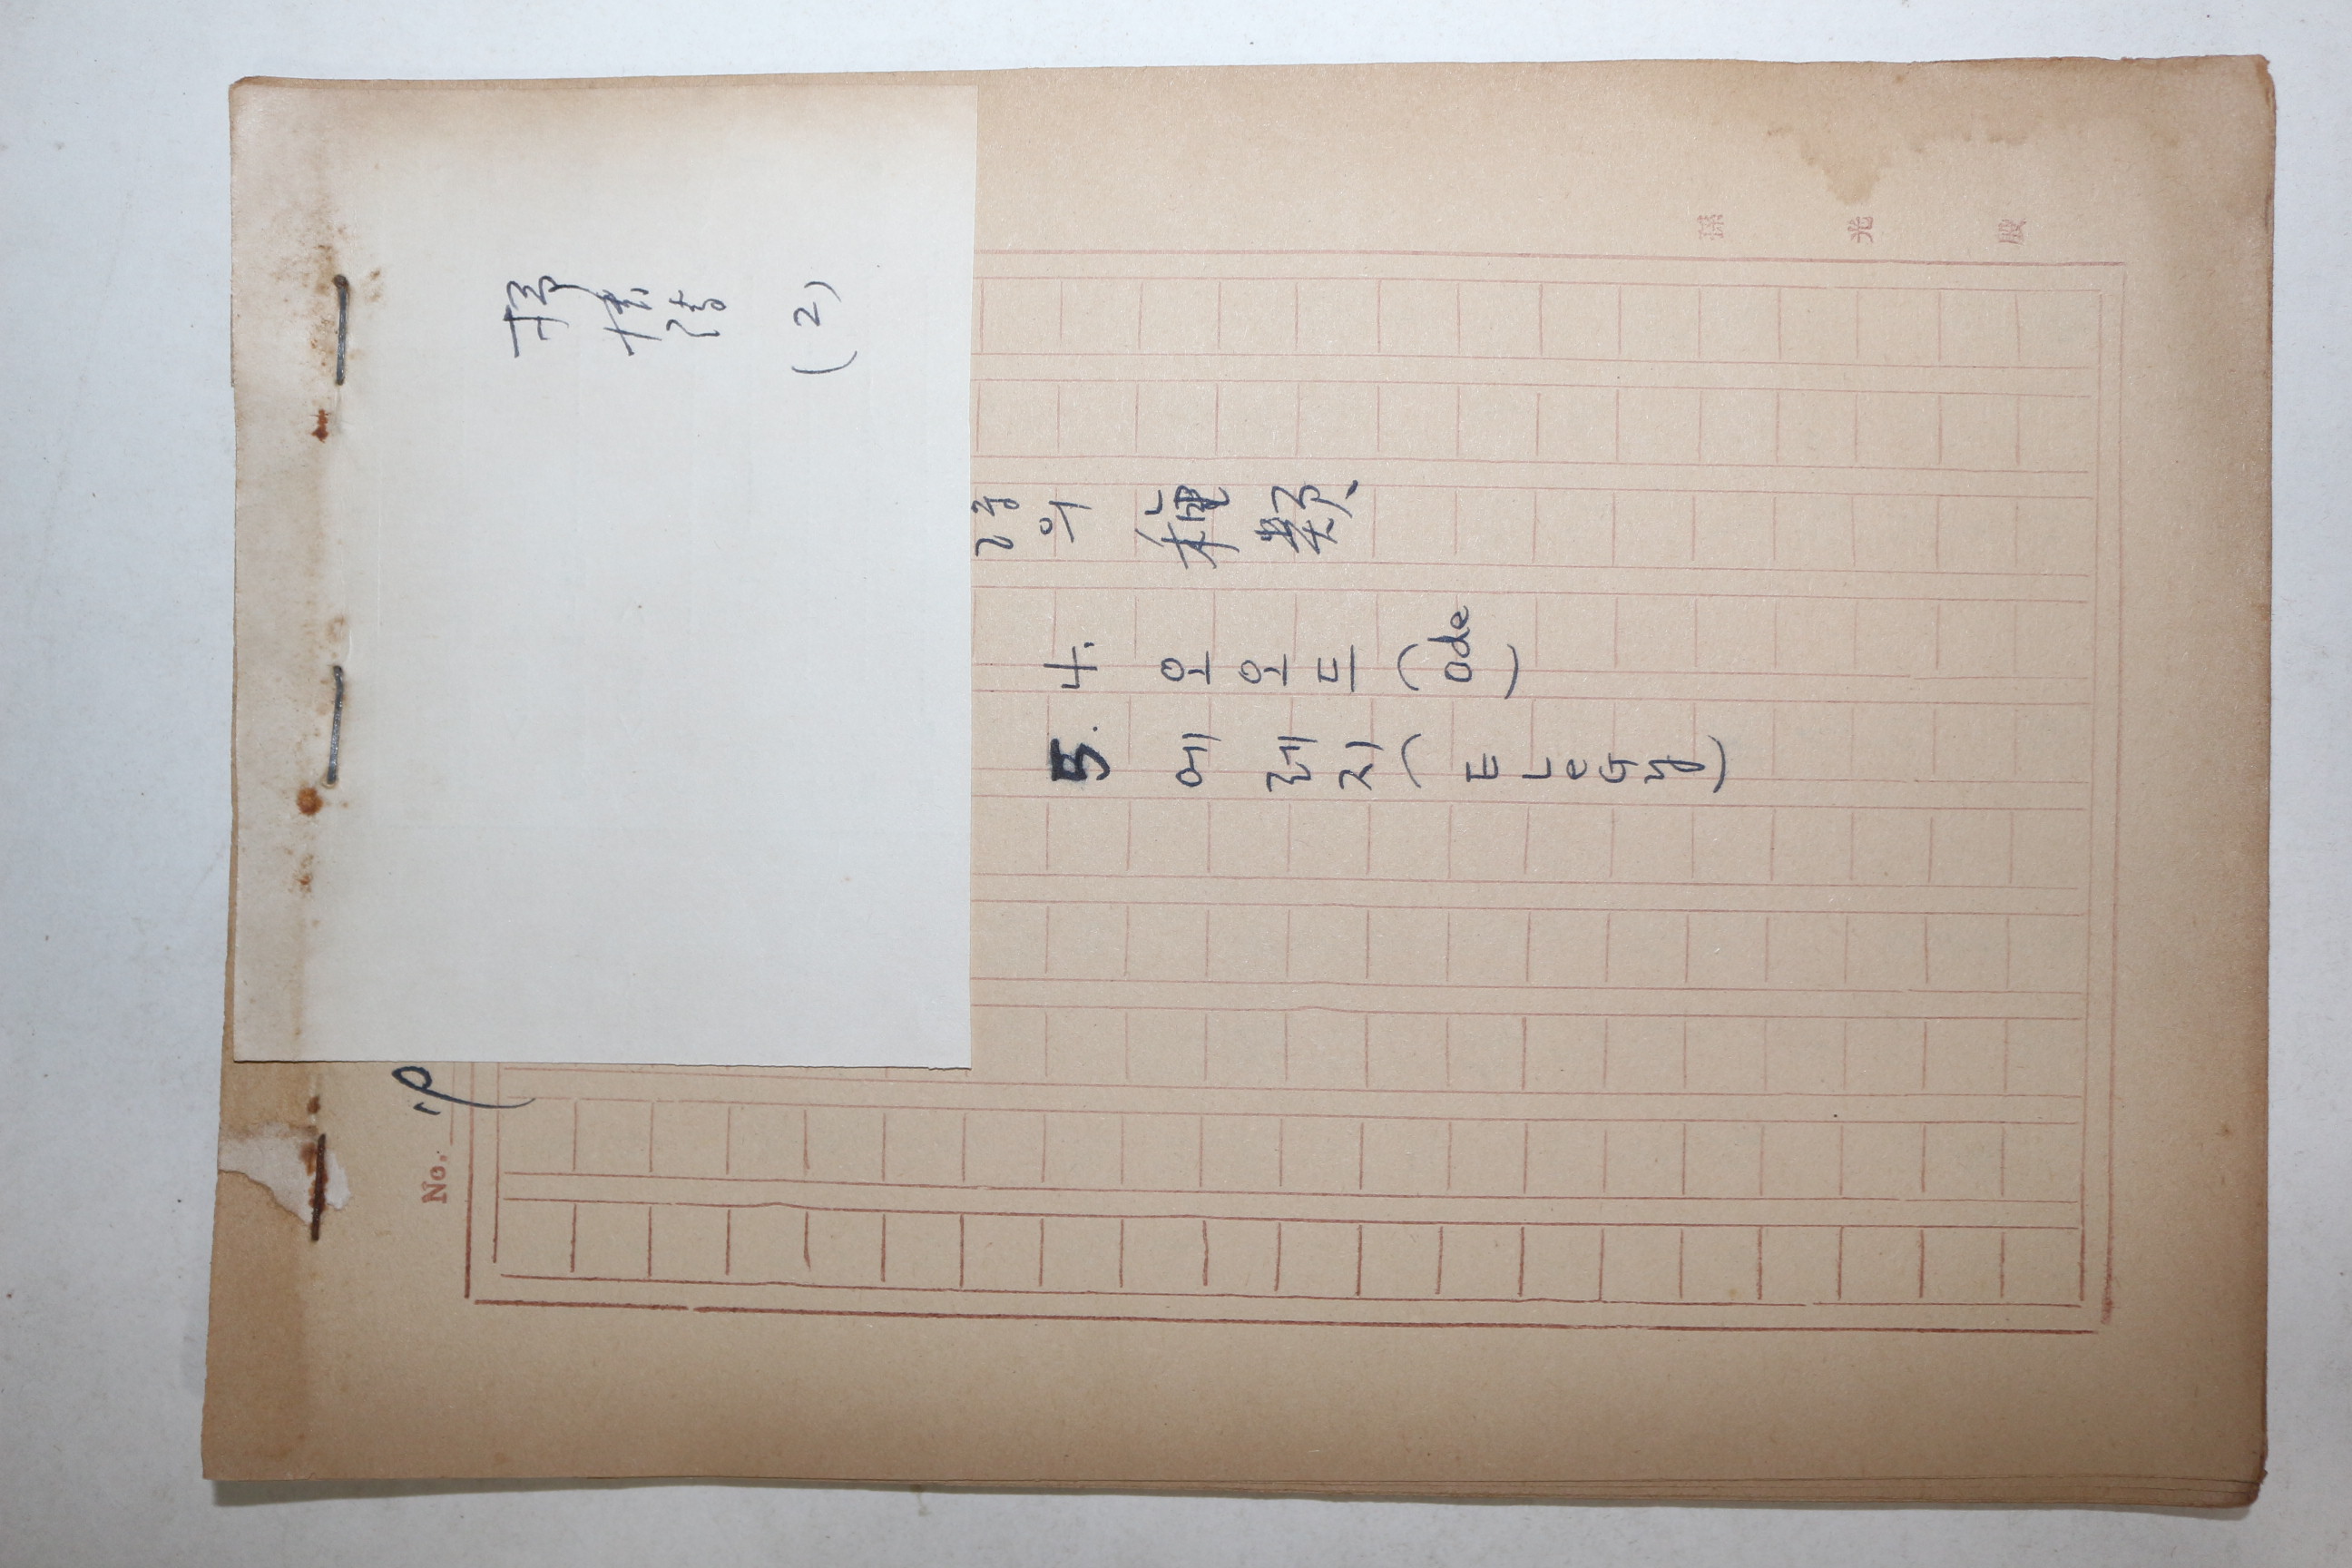 抒情詩 (2)
No.
詩의 種類
4. 오오드 (Ode)
5. 에레지 (ELeGy)
孫光殷